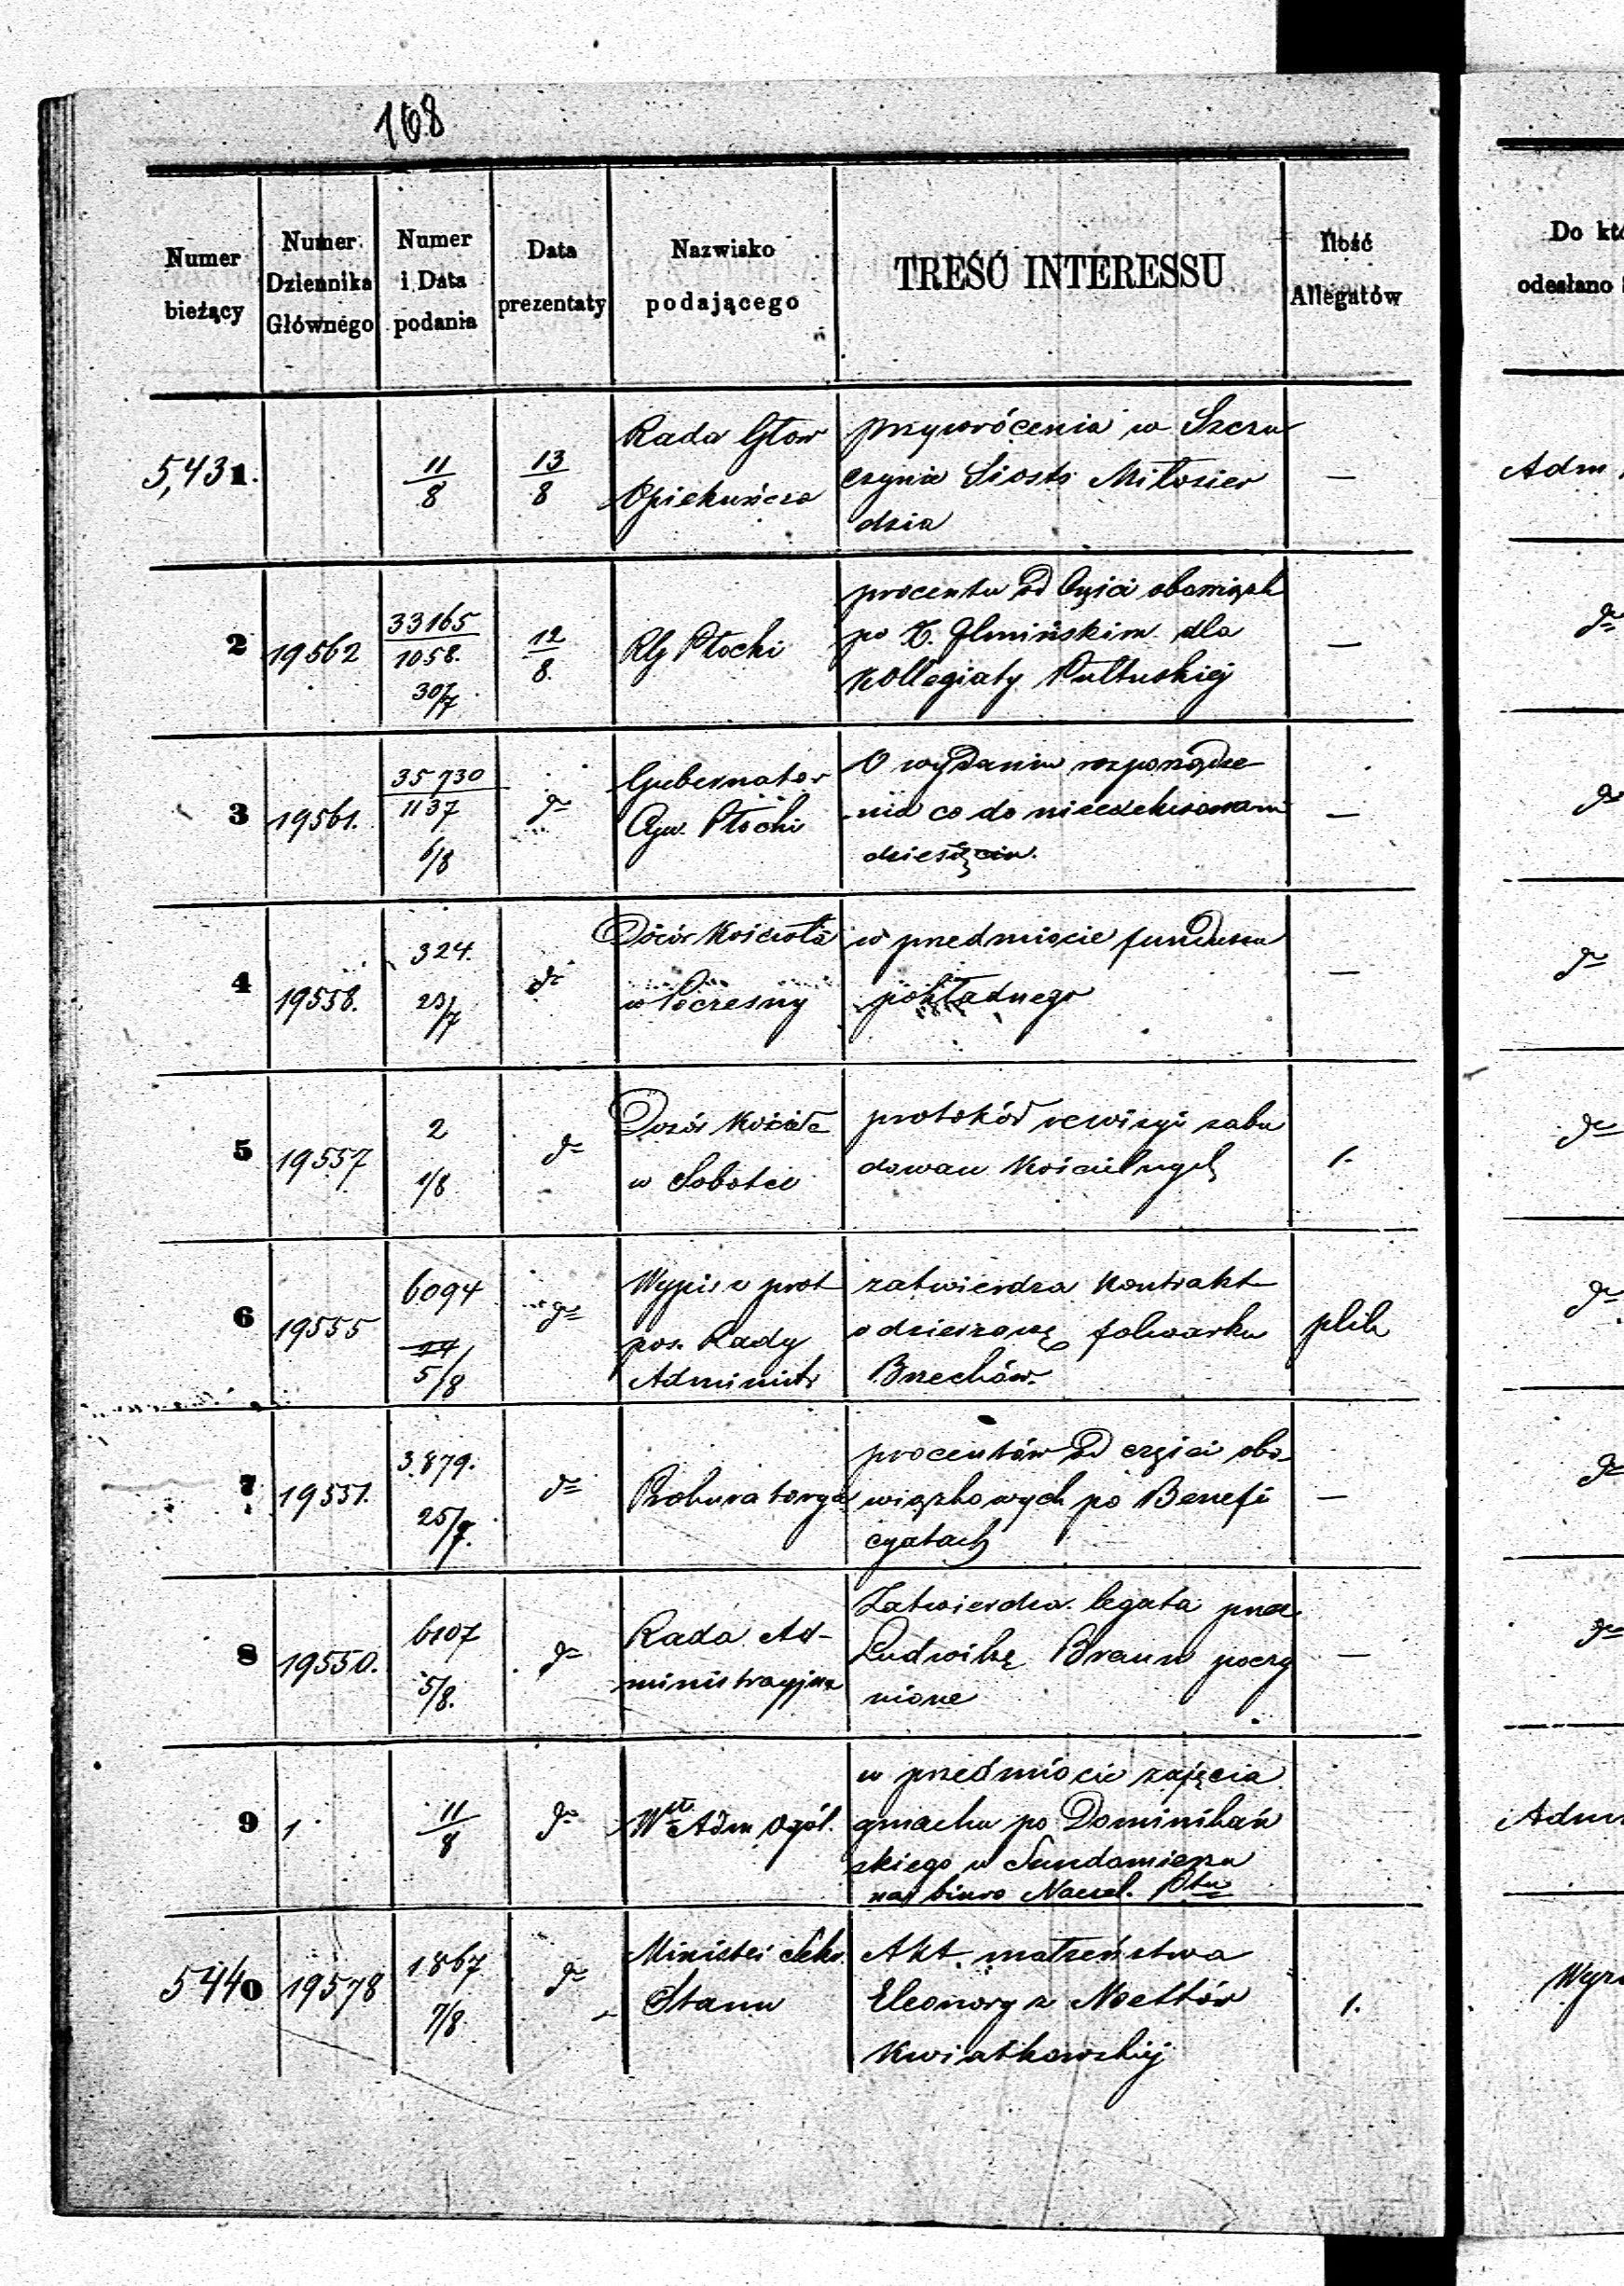 168
Numer bieżący
Numer Dziennika Głównego
Numer i Data podania
Data prezentaty
Nazwisko podającego
TREŚĆ INTERESSU
Ilość Allegatów
Do któ
odesłano
5,431.
11/8
13/8
Rada Głow
Opiekuńcza
przywrócenia w Szczu
czynie Siostr Miłosier
dzia
—
Adm
2
19562
33165
1058.
30/7
12
8.
RG Płocki
procentu od części obowiązk
po X. Ilmińskim dla
Kollegiaty Pułtuskiej
—
do
3
19561.
35730
1137
6/8
do
Gubernator
Cyw. Płocki
O wydaniu rozporządze
nia co do nieexekwowani
dziesięcin.
—
do
4
19558.
324.
23/7
do
Dozór Kościoła
w Poczesny
w przedmiocie funduszu
pokładnego
—
do
5
19557
2
1/8
do
Dozór Kościoła
w Sobotce
protokół rewizyi zabu
dowan Kościelnych
1.
do
6
19555
6094
5/8
do
Wypis z prot
pos. Rady
Administr
zatwierdza Kontrakt
o dzierżawę folwarku
Brzechów.
plik
do
7
19551.
3.879.
25/7.
do
Prokuratorya
procentów od części obo
wiązkowych po Benefi
cyatach
—
do
8
19550.
6107
5/8.
do
Rada Ad-
ministracyjna
Zatwierdza legata przez
Ludwikę Braun poczy
nione
—
do
9
1
11/8
do
Wł Adm Ogól.
w przedmiocie zajęcia
gmachu po Dominikań
skiego w Sandomierzu
na biuro Naczel. Ptu
Adm
5440
19578
1867
7/8
do
Minister Sekr.
Stanu
Akt małżeństwa
Eleonory z Noeltów
Kwiatkowskiej
1.
Wyz